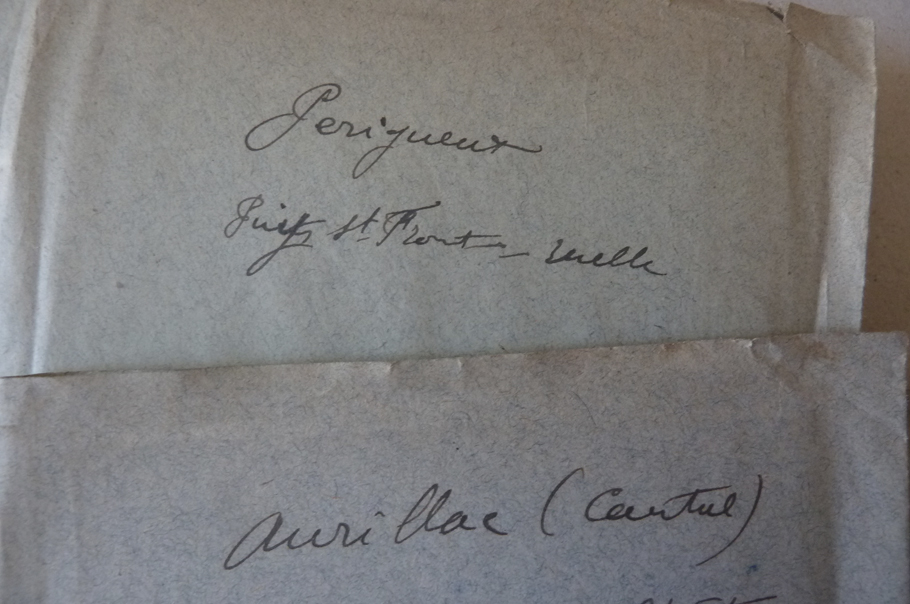 Perigueux
Puy St Front - ruelle
Aurillac (Cantal)